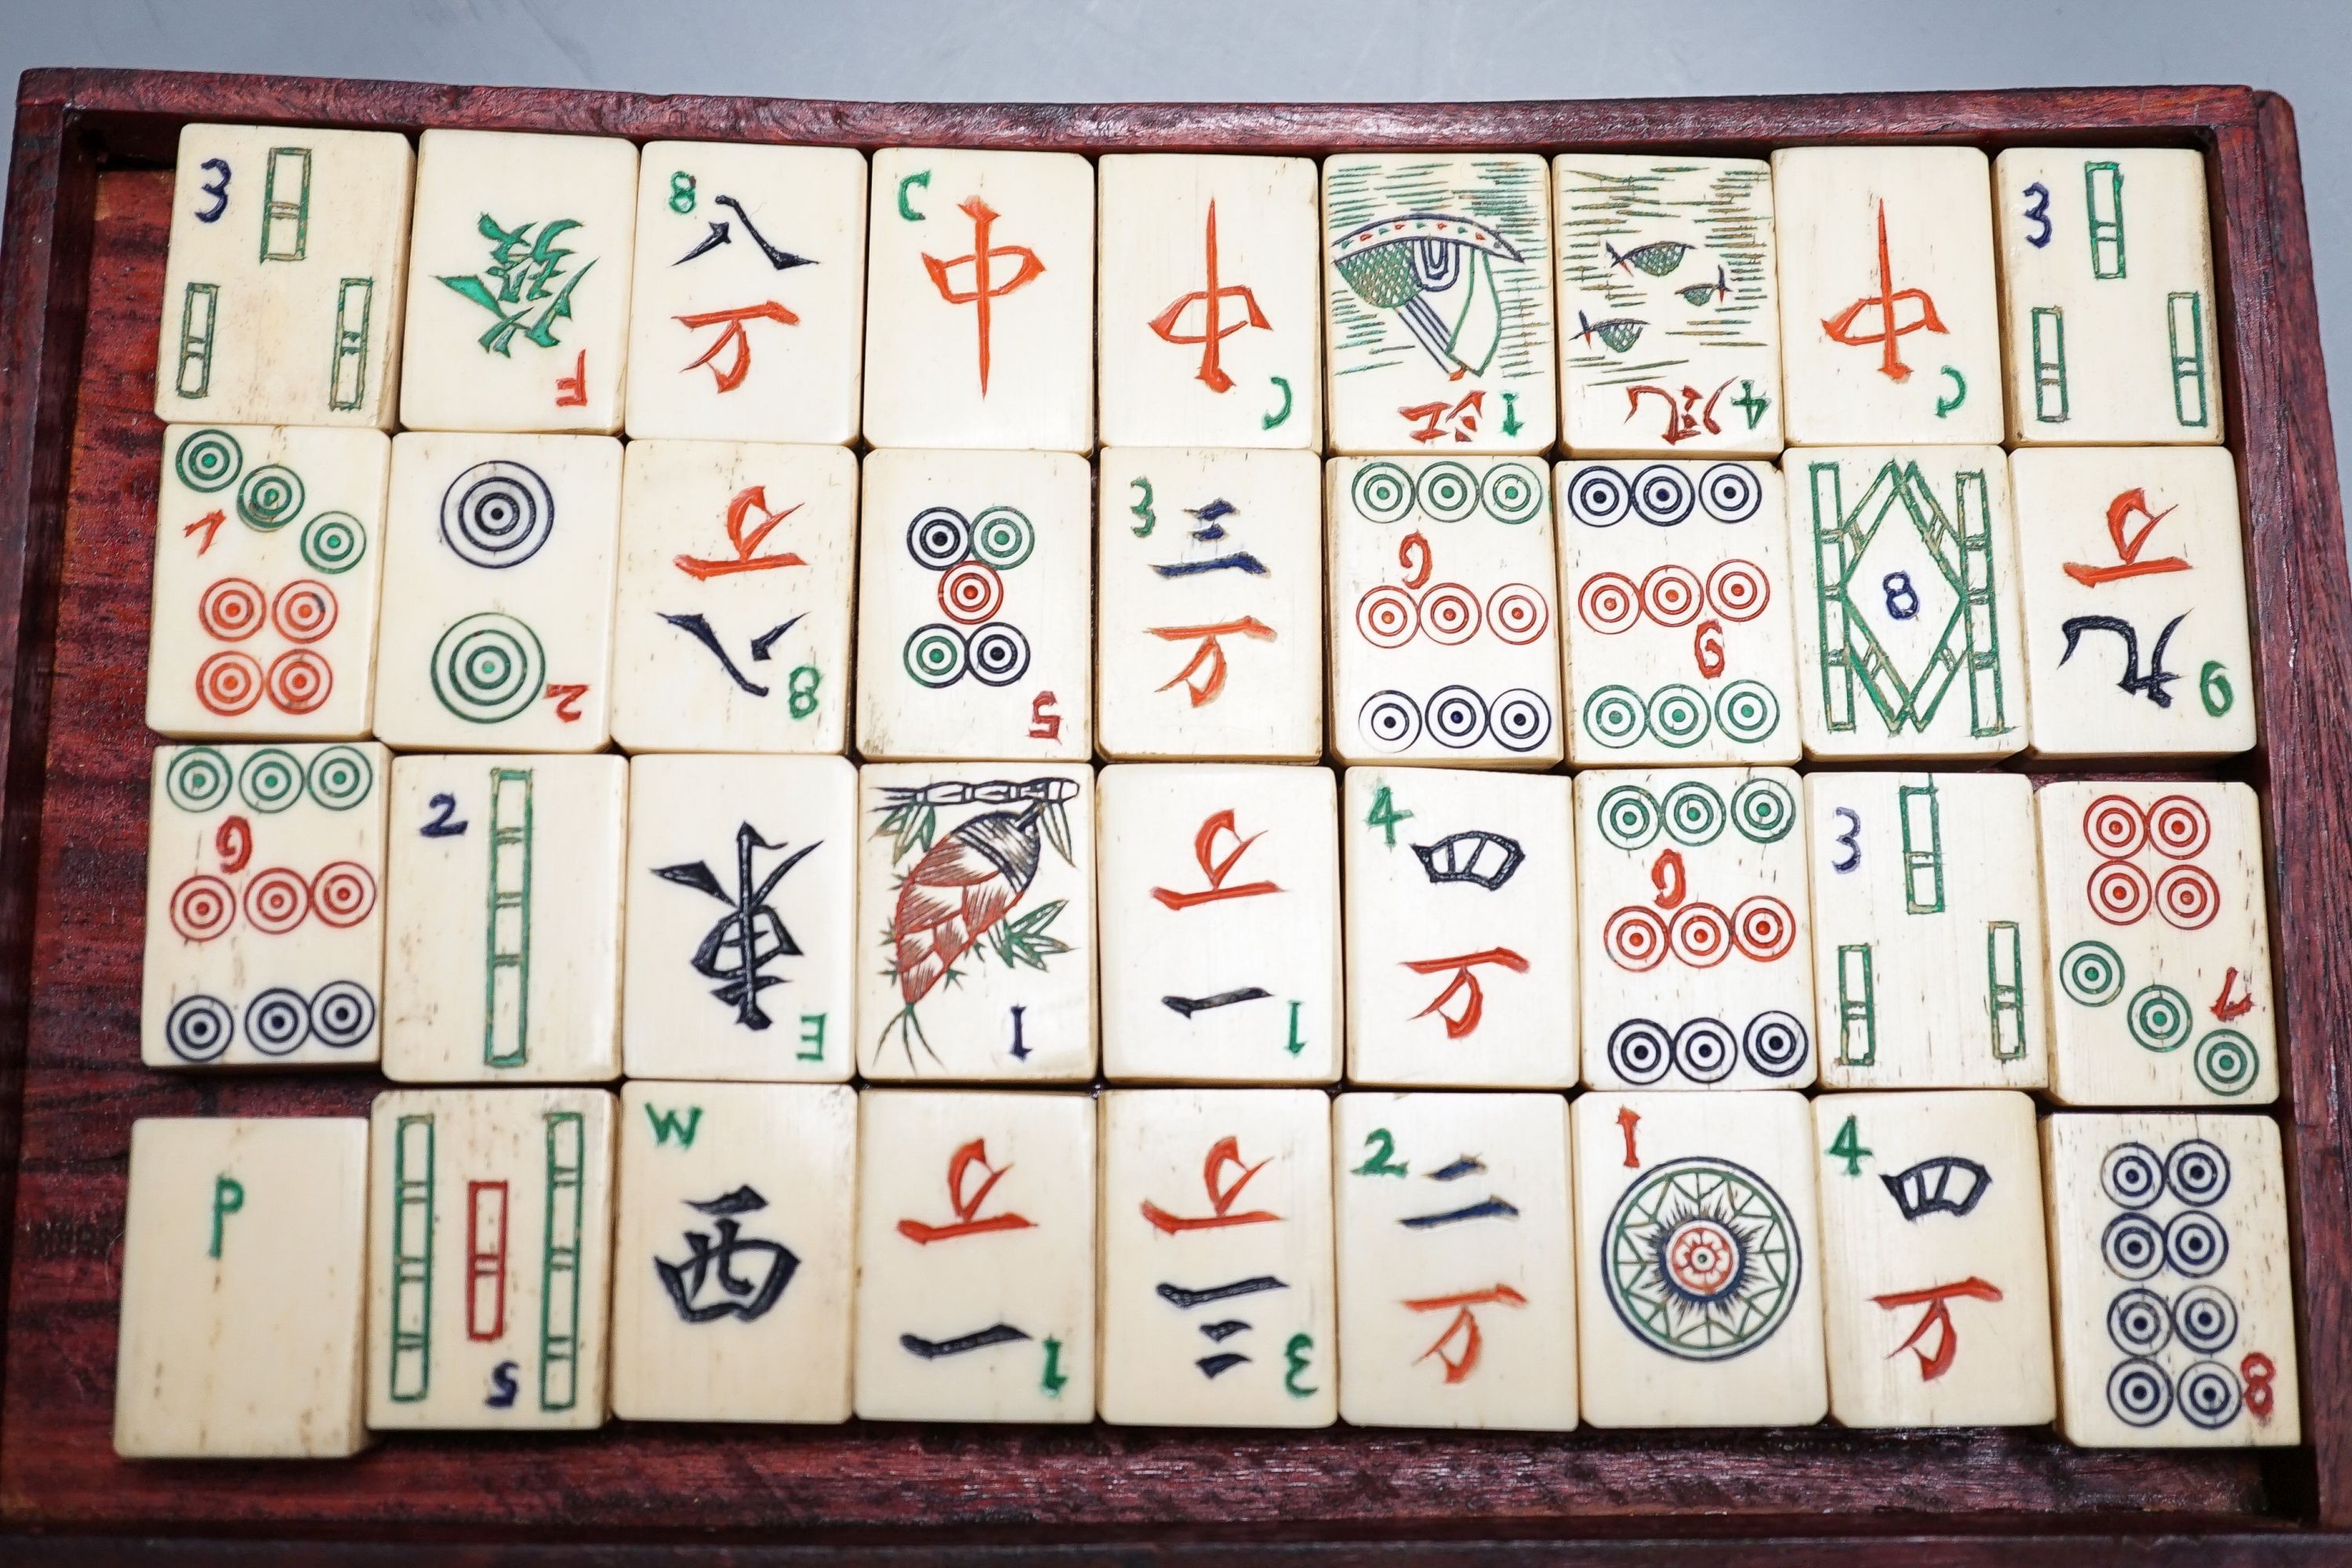 3
F
發
8
八
万
C
中
C
中
1
4
C
中
3
7
2
8
八
万
5
3
三
万
9
9
8
9
九
万
9
2
E
東
1
1
一
万
4
四
万
9
3
7
P
5
W
西
1
一
万
3
三
万
2
二
万
1
4
四
万
8